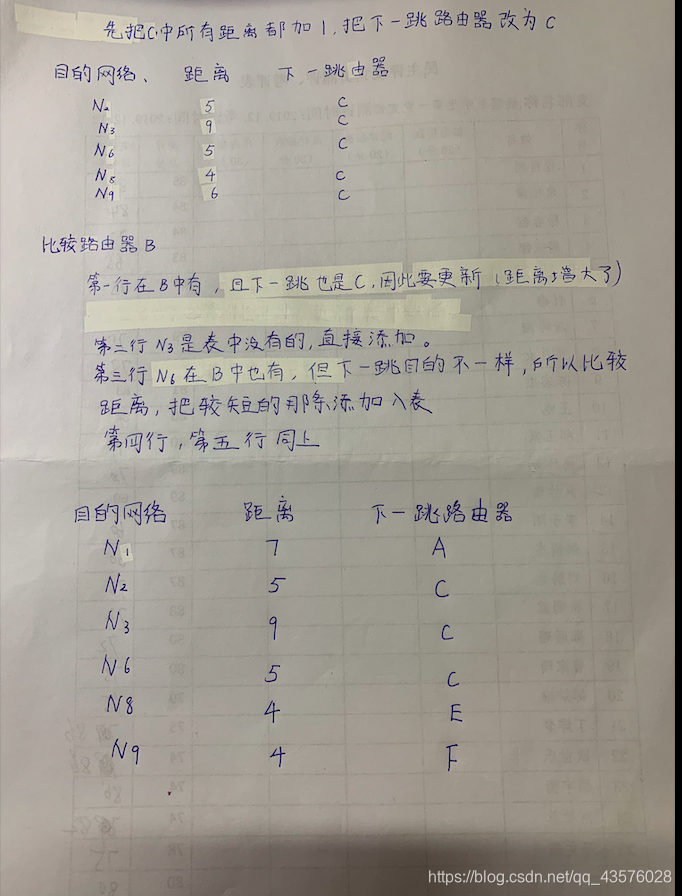 先把C中所有距离都加1,把下一跳路由器改为C
目的网络、 距离 下一跳由器
N₂ 5 C
N₃ 9 C
N₆ 5 C
N₈ 4 C
N₉ 6 C
比较路由器B
第一行在B中有,且下一跳也是C,因此要更新(距离增大了)
第二行N₃是表中没有的,直接添加。
第三行N₆在B中也有,但下一跳目的不一样,所以比较
距离,把较短的那除添加入表
第四行,第五行同上
目的网络 距离 下一跳路由器
N₁ 7 A
N₂ 5 C
N₃ 9 C
N6 5 C
N8 4 E
N9 4 F
https://blog.csdn.net/qq_43576028